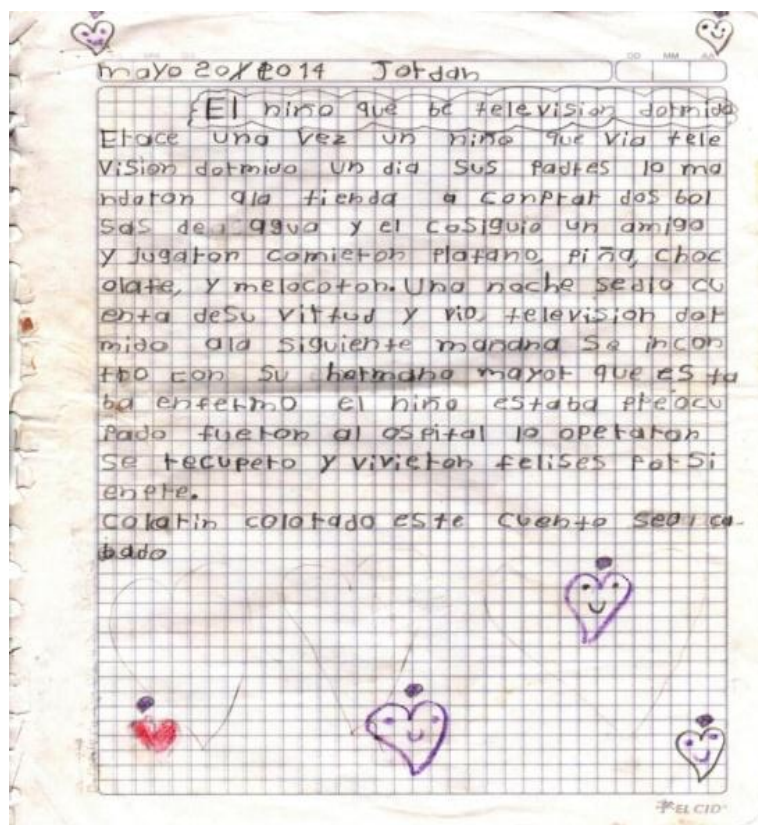 DD MM AA
mayo 20/2014 Jordan
El niño que be television dormido
Erace una vez un niño que via tele
vision dormido un dia sus padres lo ma
ndaron ala tienda a conprar dos bol
sas de agua y el cosiguio un amigo
y jugaron comieron platano, piña, choc
olate, y melocoton. Una noche sedio cu
enta desu virtud y vio, television dor
mido ala siguiente manana se incon
tro con su hermano mayor que es ta
ba enfermo el niño estaba preocu
pado fueron al ospital lo operaron
se recupero y vivieron felises por si
enpre.
Colorin colorado este cuento sea ca-
bado
EL CID